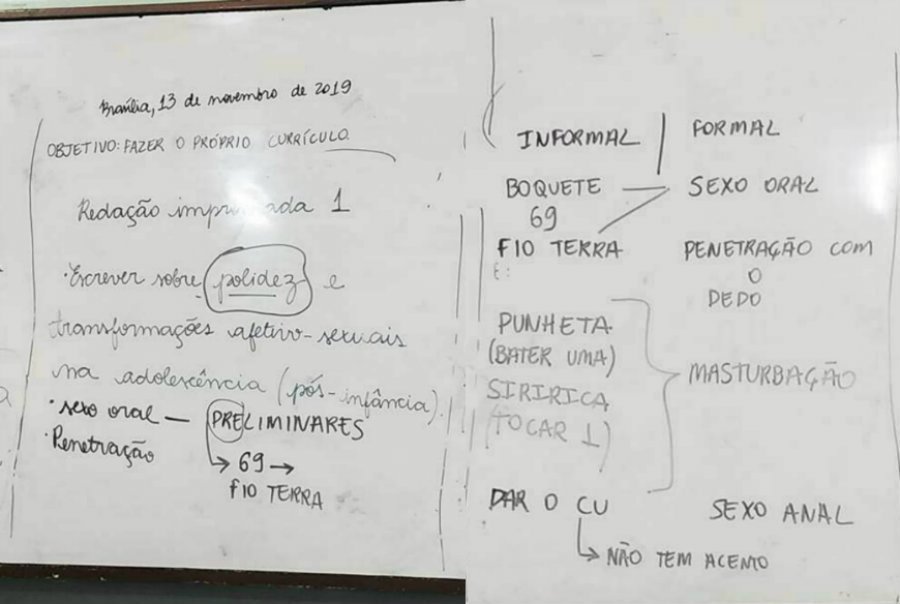 Brasília, 13 de novembro de 2019
OBJETIVO: FAZER O PRÓPRIO CURRÍCULO
Redação 1
• Escrever sobre polidez e
transformações afetivo-sexuais
na adolescência (pós-infância).
• sexo oral — PRELIMINARES
• Penetração
→ 69 →
FIO TERRA
INFORMAL | FORMAL
BOQUETE — SEXO ORAL
69
FIO TERRA PENETRAÇÃO COM
O
DEDO
PUNHETA
(BATER UMA)
MASTURBAÇÃO
SIRIRICA
(TOCAR 1)
DAR O CU SEXO ANAL
→ NÃO TEM ACENTO